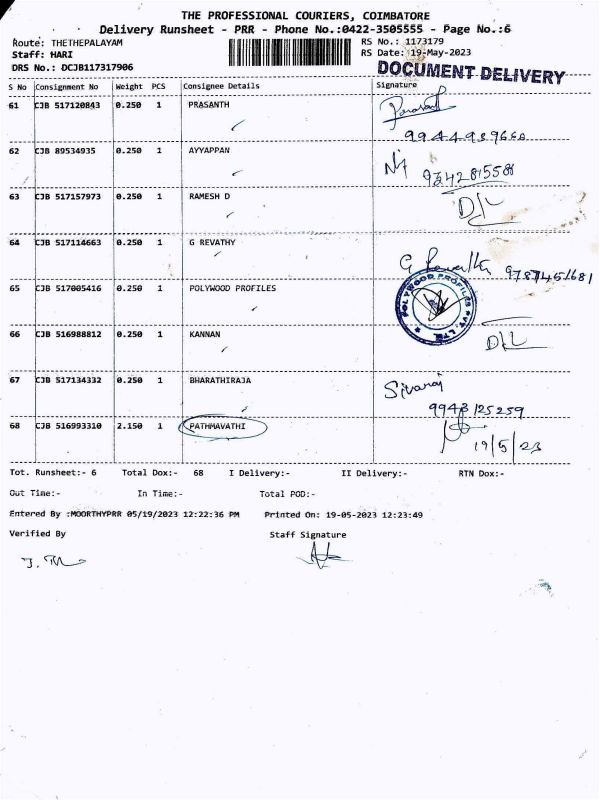 THE PROFESSIONAL COURIERS, COIMBATORE
Delivery Runsheet - PRR - Phone No.:0422-3505555 - Page No.:6
Route: THETHEPALAYAM RS No.: 1173179
Staff: HARI RS Date: 19-May-2023
DRS No.: DCJB117317906 DOCUMENT DELIVERY
S No Consignment No Weight PCS Consignee Details Signature
61 CJB 517120843 0.250 1 PRASANTH
62 CJB 89534935 0.250 1 AYYAPPAN
63 CJB 517157973 0.250 1 RAMESH D
D/L
64 CJB 517114663 0.250 1 G REVATHY
G Revathi 9787451681
65 CJB 517005416 0.250 1 POLYWOOD PROFILES
POLYWOOD PROFILES PVT. LTD
66 CJB 516988812 0.250 1 KANNAN
D/L
67 CJB 517134332 0.250 1 BHARATHIRAJA
Sivaraj
9943125259
68 CJB 516993310 2.150 1 PATHMAVATHI
19/5/23
Tot. Runsheet:- 6 Total Dox:- 68 I Delivery:- II Delivery:- RTN Dox:-
Out Time:- In Time:- Total POD:-
Entered By :MOORTHYPRR 05/19/2023 12:22:36 PM Printed On: 19-05-2023 12:23:49
Verified By Staff Signature